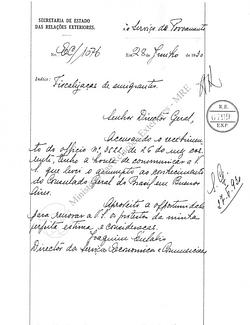 SECRETARIA DE ESTADO
DAS RELAÇÕES EXTERIORES.
Ao Serviço de Povoamento
Em 28 de Junho de 1930
Indice: Fiscalização de emigrantes.
Senhor Director Geral,
Accusando o recebimento
do officio nº 3522 de 26 do mez
tenho a honra de communicar a V.
que levei o assumpto ao conhecimento
do Consulado Geral do Brasil em Buenos
Aires.
Aproveito a opportunidade
para renovar a V. os protestos da minha
perfeita estima e consideração.
Joaquim Eulalio
Director dos Serviços Economicos e Commerciaes
R.E.
EXP.
Ministério das Relações Exteriores - MRE